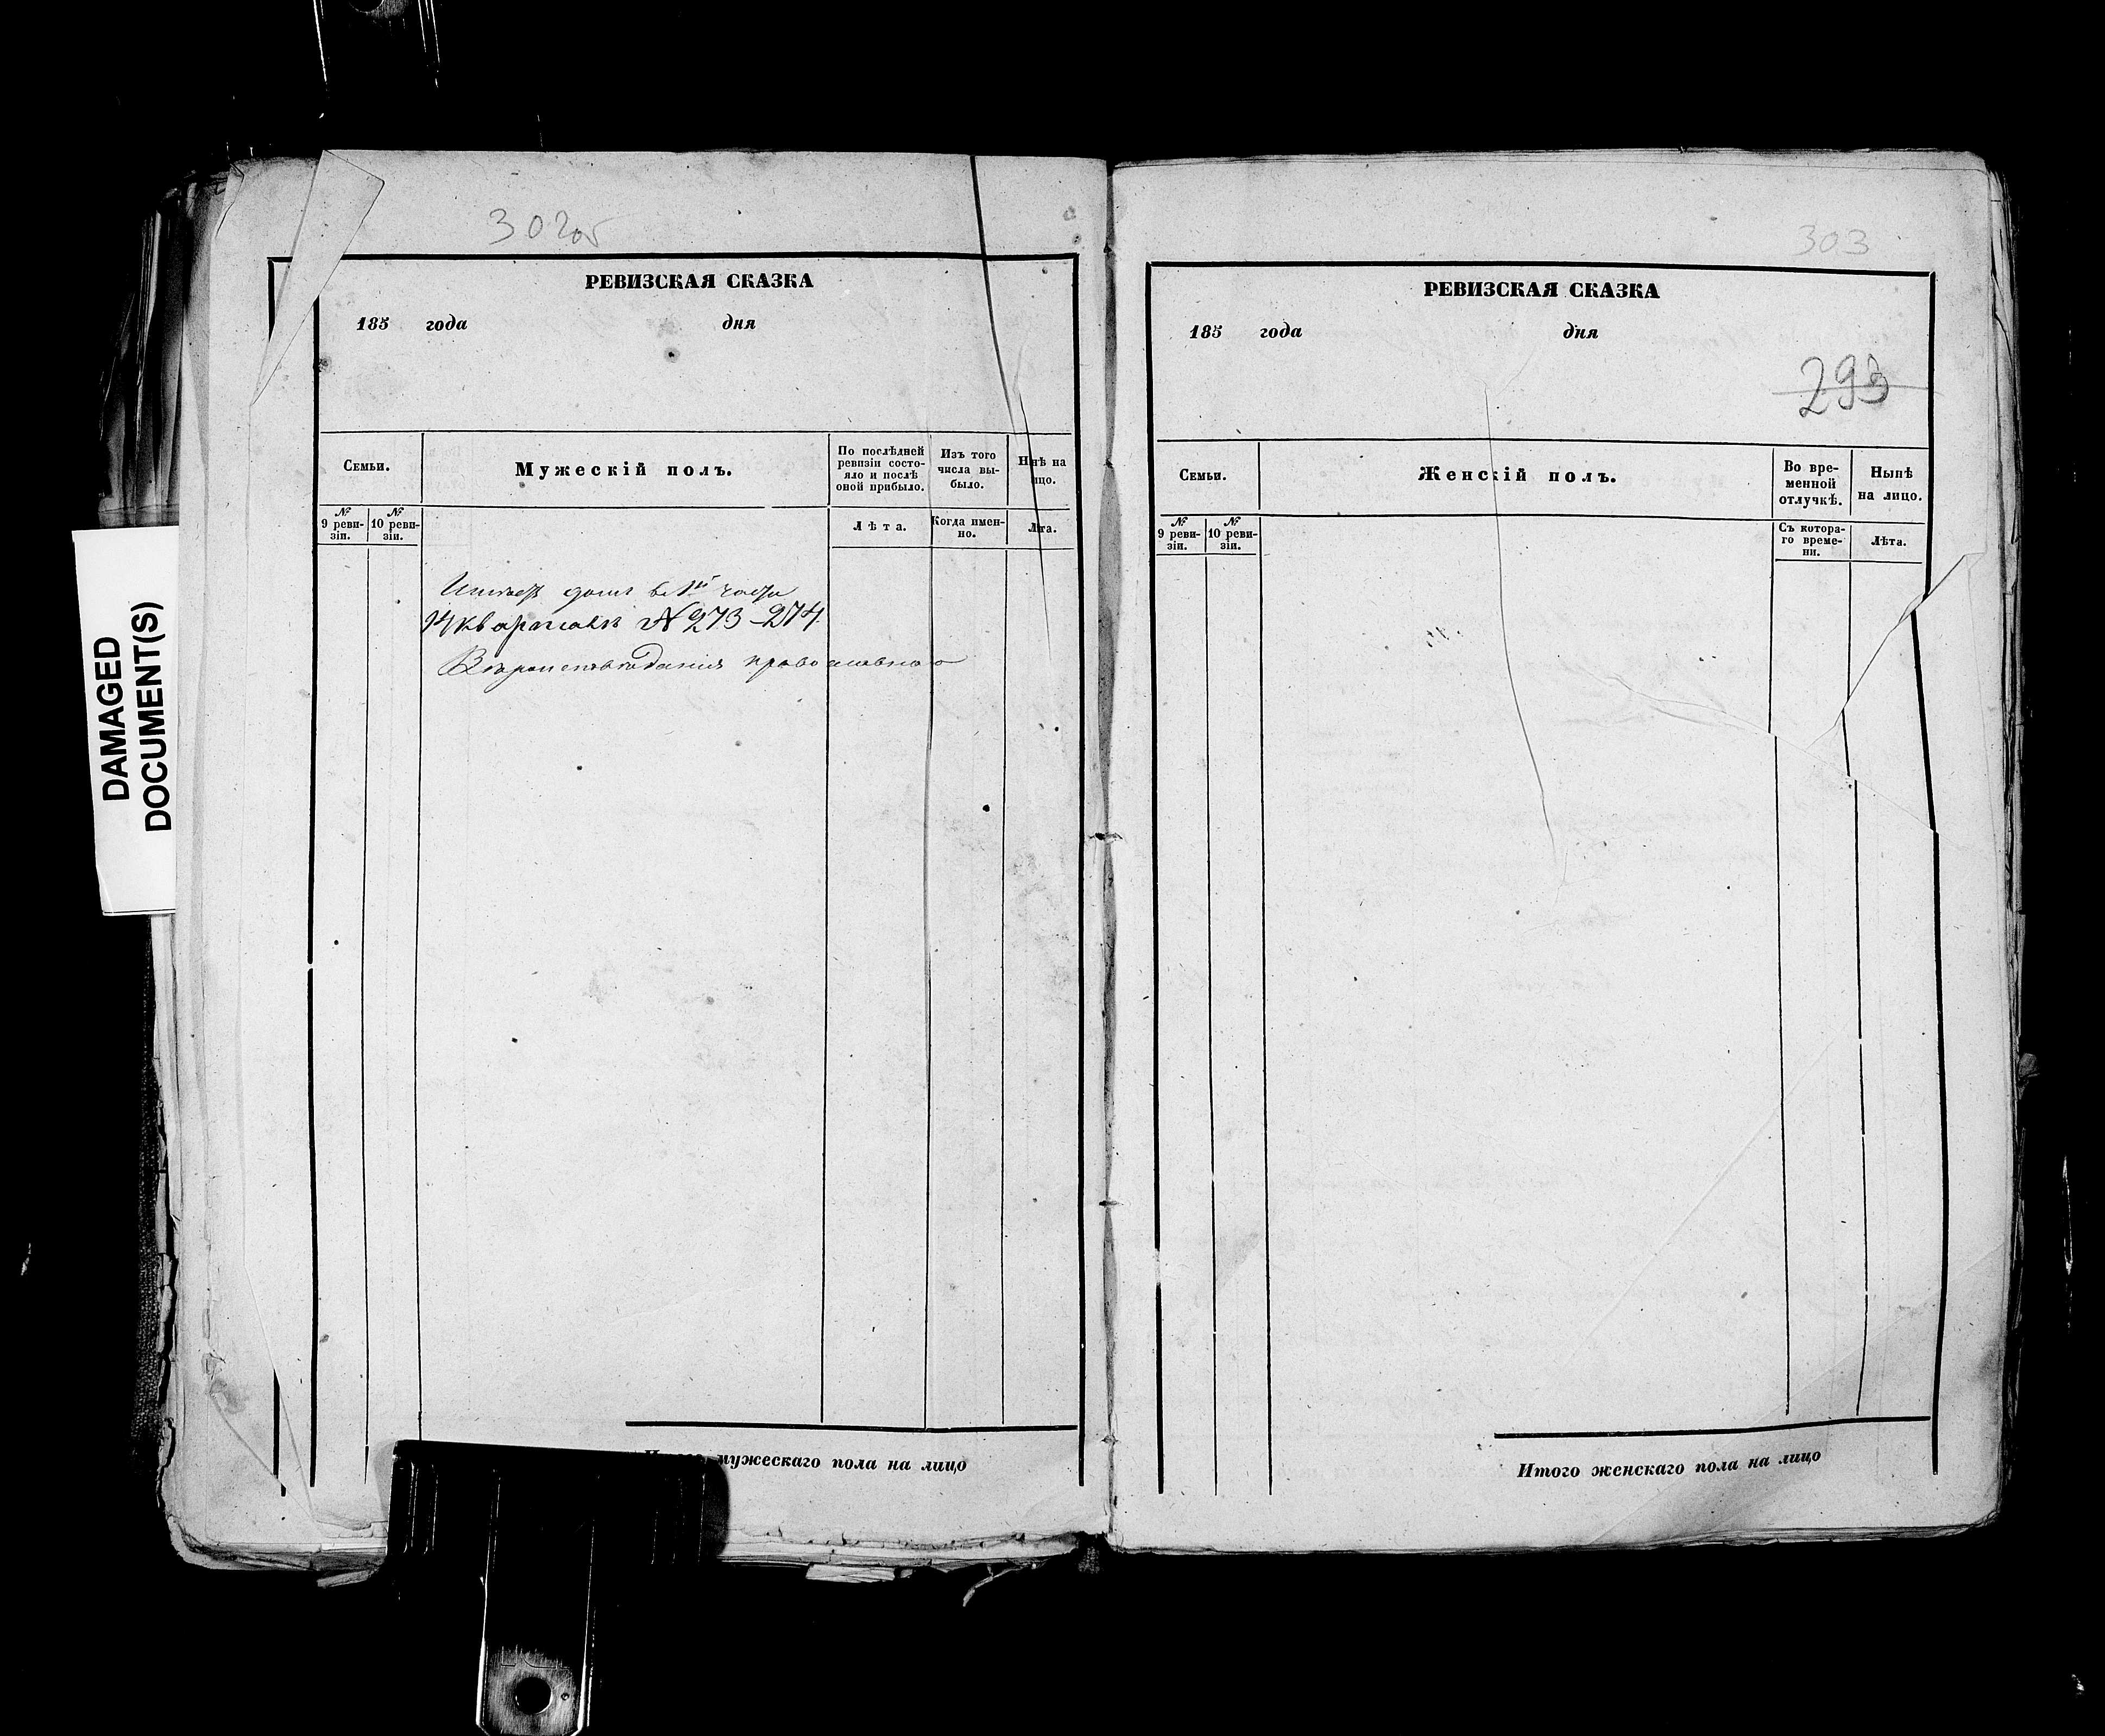 DAMAGED
DOCUMENT(S)
302об
РЕВИЗСКАЯ СКАЗКА
185 года дня
Семьи.
Мужескій полъ.
По послѣдней
ревизіи состо-
яло и послѣ
оной прибыло.
Изъ того
числа вы-
было.
Ннѣ на
цо.
№
9 реви-
зіи.
№
10 реви-
зіи.
Лѣта.
Когда имен-
но.
Лта.
Имѣетъ домъ въ 1й части
14 квартала № 273-274
Вѣроисповѣданія православнаго
мужескаго пола на лицо
303
РЕВИЗСКАЯ СКАЗКА
185 года дня
293
Семьи.
Женскій полъ.
Во вре-
менной
отлучкѣ.
Нынѣ
на лицо.
№
9 реви-
зіи.
№
10 реви-
зіи.
Съ котора-
го време-
ни.
Лѣта.
Итого женскаго пола на лицо